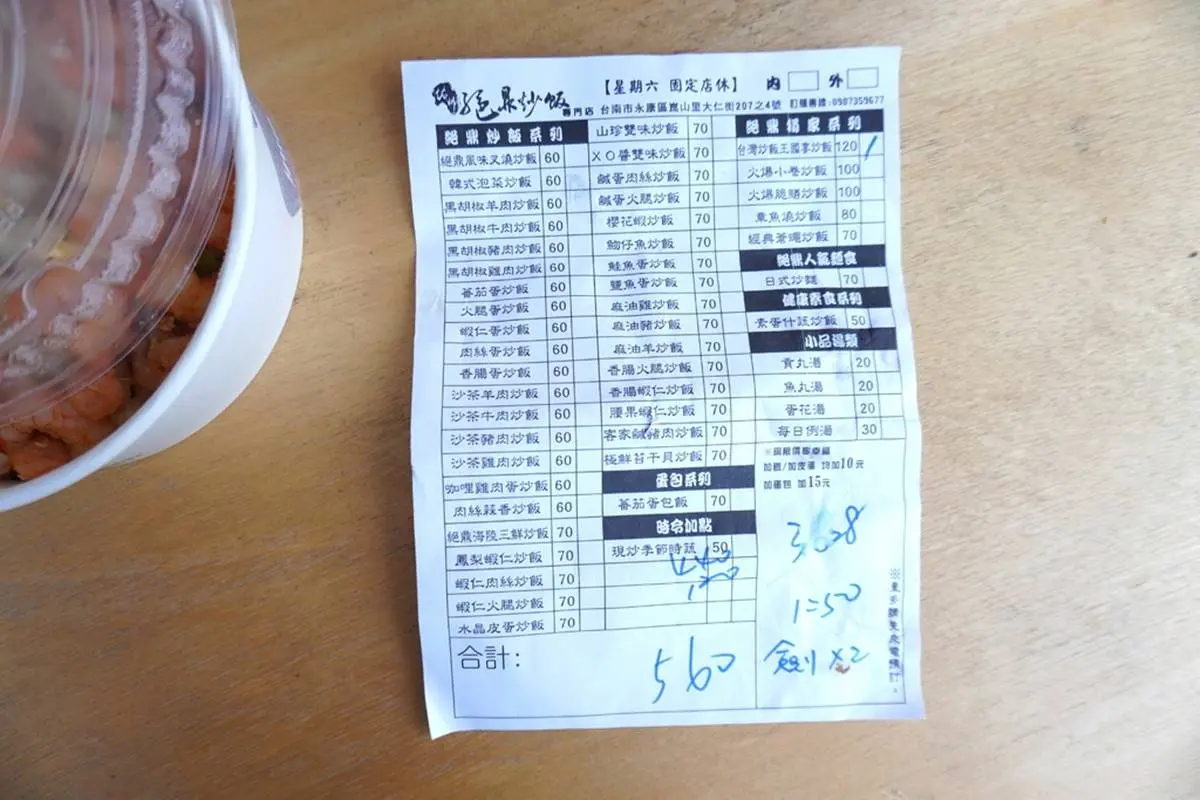 絕鼎炒飯 專門店
【星期六 固定店休】 內 外
台南市永康區崑山里大仁街207之4號 訂購專線:0987359677
絕鼎炒飯系列
絕鼎風味叉燒炒飯 60
韓式泡菜炒飯 60
黑胡椒羊肉炒飯 60
黑胡椒牛肉炒飯 60
黑胡椒豬肉炒飯 60
黑胡椒雞肉炒飯 60
蕃茄蛋炒飯 60
火腿蛋炒飯 60
蝦仁蛋炒飯 60
肉絲蛋炒飯 60
香腸蛋炒飯 60
沙茶羊肉炒飯 60
沙茶牛肉炒飯 60
沙茶豬肉炒飯 60
沙茶雞肉炒飯 60
咖哩雞肉蛋炒飯 60
肉絲蒜香炒飯 60
絕鼎海陸三鮮炒飯 70
鳳梨蝦仁炒飯 70
蝦仁肉絲炒飯 70
蝦仁火腿炒飯 70
水晶皮蛋炒飯 70
山珍雙味炒飯 70
XO醬雙味炒飯 70
鹹蛋肉絲炒飯 70
鹹蛋火腿炒飯 70
櫻花蝦炒飯 70
魩仔魚炒飯 70
鮭魚蛋炒飯 70
鹽魚蛋炒飯 70
麻油雞炒飯 70
麻油豬炒飯 70
麻油羊炒飯 70
香腸火腿炒飯 70
香腸蝦仁炒飯 70
腰果蝦仁炒飯 70
客家鹹豬肉炒飯 70
極鮮苔干貝炒飯 70
蛋包系列
蕃茄蛋包飯 70
時令加點
現炒季節時蔬 50
440
120
絕鼎獨家系列
台灣炒飯王國宴炒飯 120
火爆小卷炒飯 100
火爆脆腸炒飯 100
章魚燒炒飯 80
經典蒼蠅炒飯 70
絕鼎人氣麵食
日式炒麵 70
健康素食系列
素蛋什蔬炒飯 50
小品湯類
貢丸湯 20
魚丸湯 20
蛋花湯 20
每日例湯 30
加飯/加皮蛋 均加10元
加蛋包 加15元
3628
1=50
x2
合計:
560